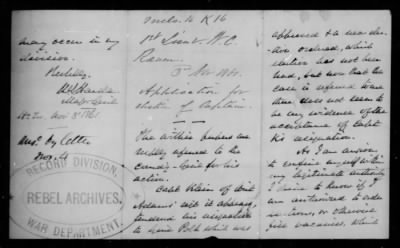 may occur in my
division.
Respectfully
Major Genl
Hd Qrs Nov 3d 1861
Ansd by letter
Nov. 4
RECORD DIVISION,
REBEL ARCHIVES,
WAR DEPARTMENT.
1st Lieut. W. C.
3 Nov 1861
Application for
election of Captain
The within papers are
respectfully referred to the
for his
action.
Capt Klein of
tendered his resignation
to Genl Polk which was
approved & a new elec-
tion ordered, which
election has not been
had, but now that the
case is referred
there does not seem to
be any evidence of the
acceptance of Capt
K's resignation.
As I am anxious
to confine myself within
my legitimate authority
I desire to know if I
am authorized to order
elections, or otherwise
fill vacancies, which